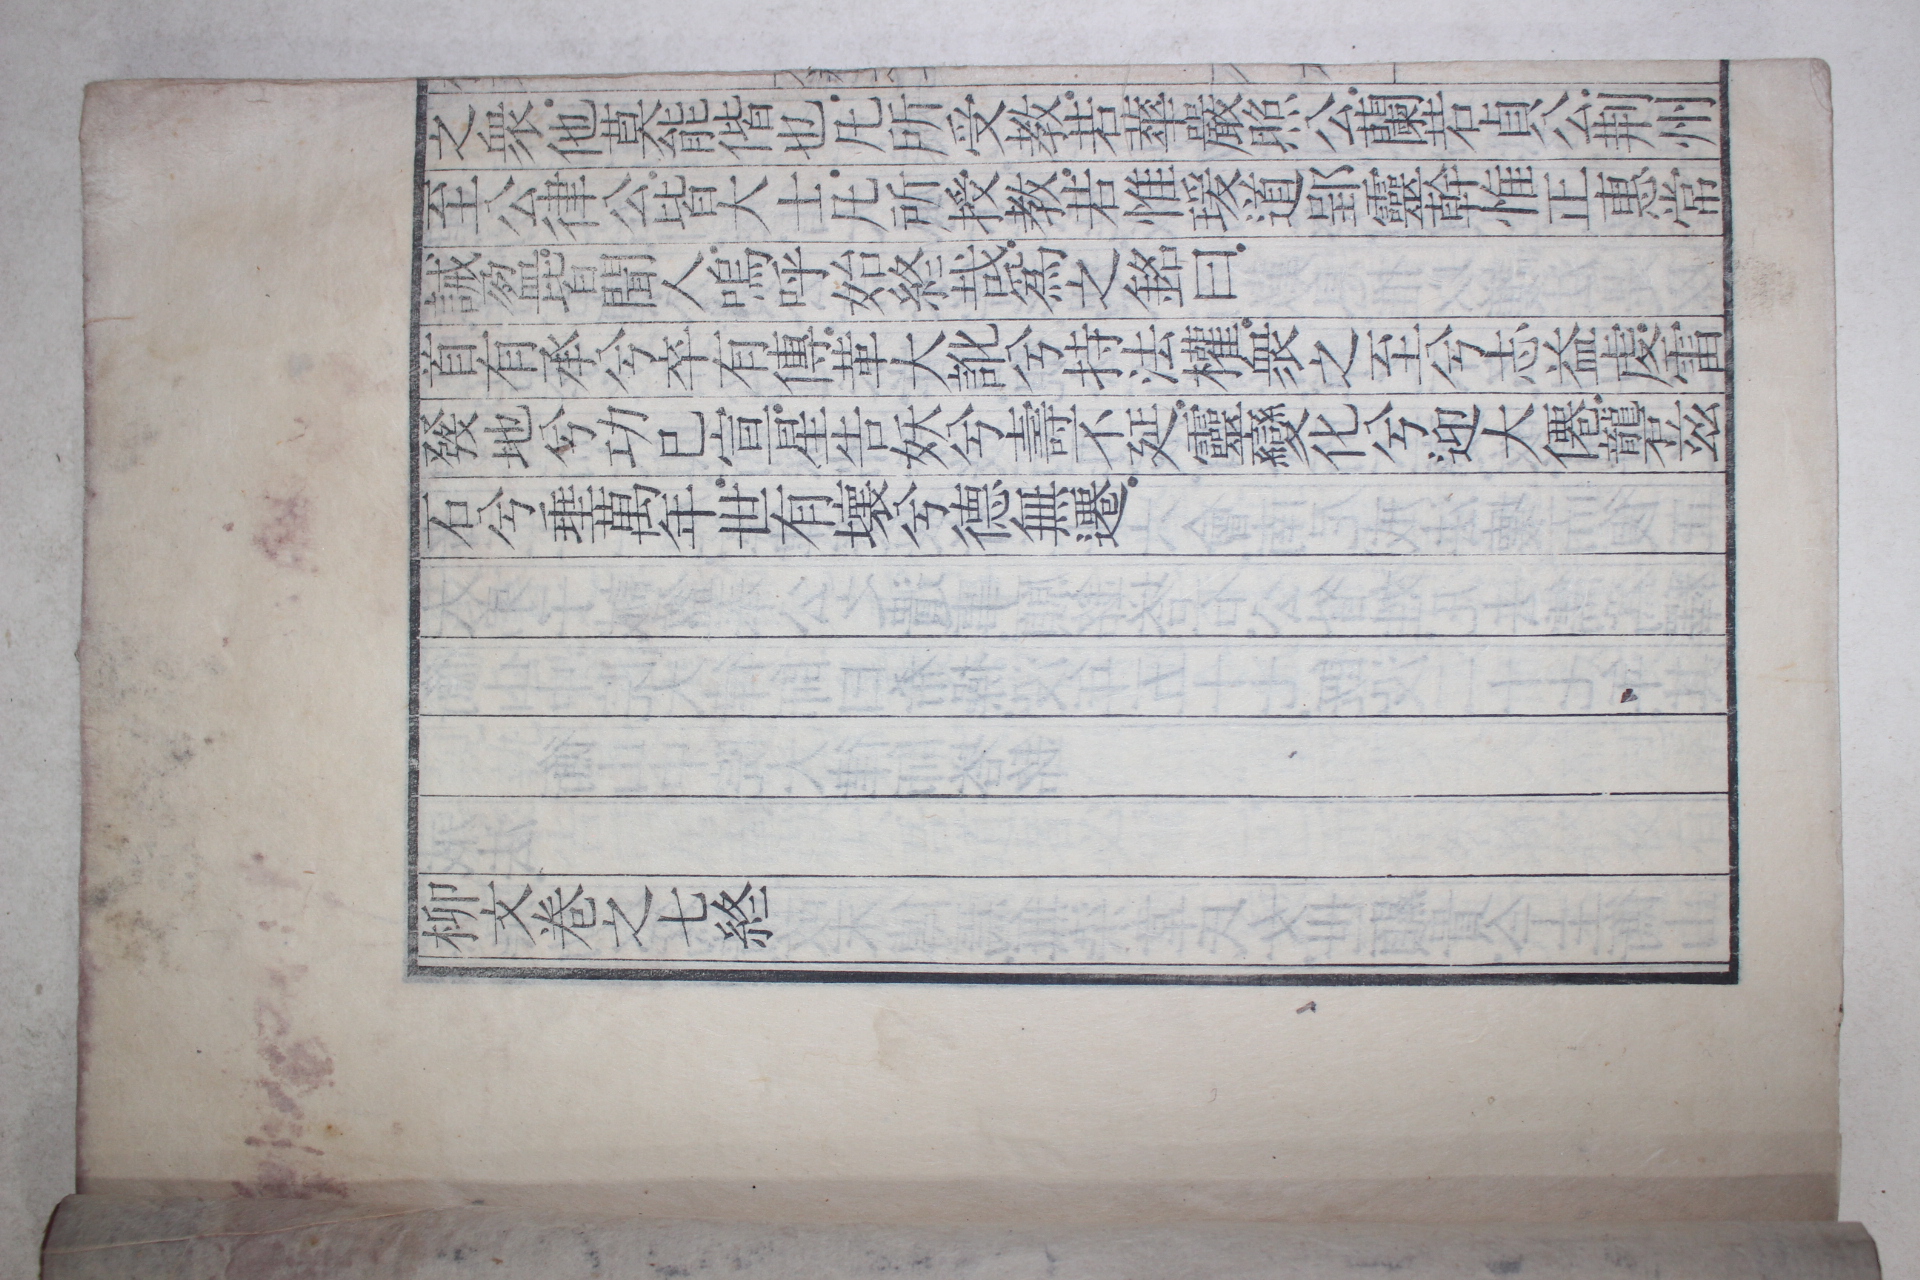 之衆他莫能偕也凡所受教若華嚴照公蘭若貞公荆州
至公律公皆大士凡所授教若惟瑗道郢靈幹惟正惠常
誡盈皆聞人嗚呼始終哉爲之銘曰
首有承兮卒有傳革大訛兮持法權衆之至兮志益虔雷
發地兮功已宣星告妖兮壽不延靈變化兮迎大僊礱兹
石兮垂萬年世有壞兮德無遷
柳文卷之七終